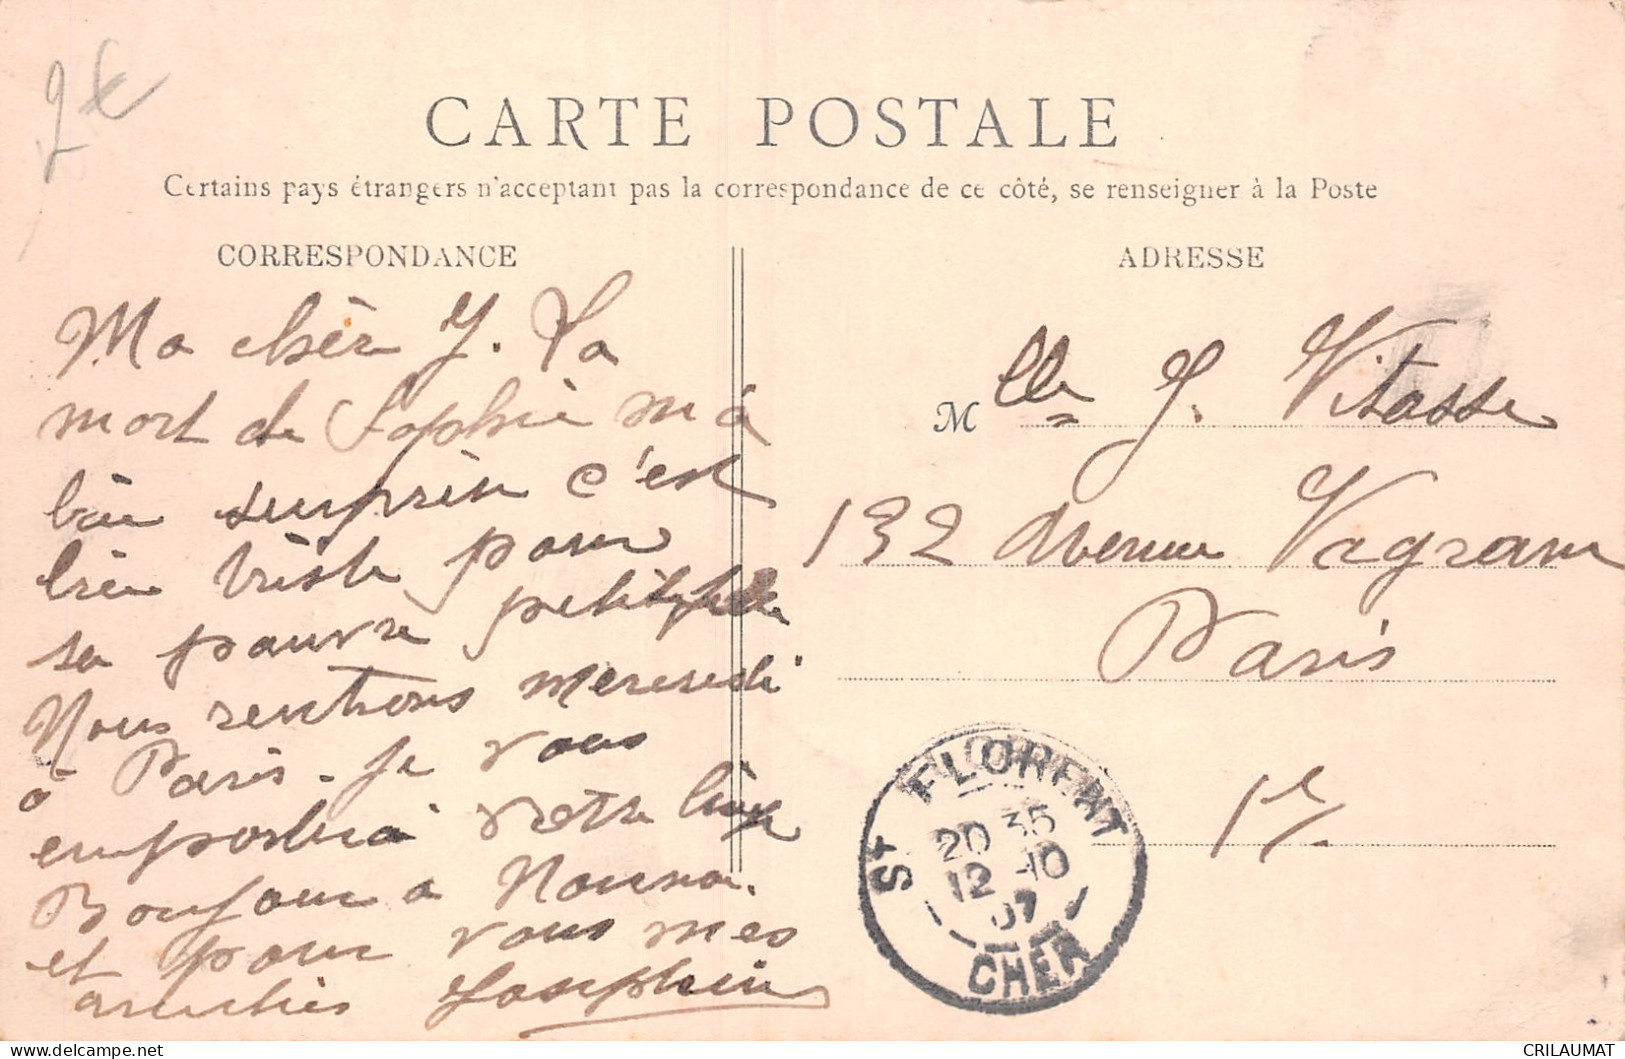 2€
CARTE POSTALE
Certains pays étrangers n'acceptent pas la correspondance de ce côté, se renseigner à la Poste
CORRESPONDANCE
Ma chère J. La
mort de Sophie m'a
bien surprise c'est
bien triste pour
sa pauvre petite
Nous rentrons mercredi
à Paris. Je vous
emporterai votre linge
Bonjour a
et pour vous mes
amitiés Josephine
ADRESSE
Mlle J. Vitasse
132 Avenue Vagram
Paris
ST FLORENT
20 35
12-10
07
CHER
CRILAUMAT